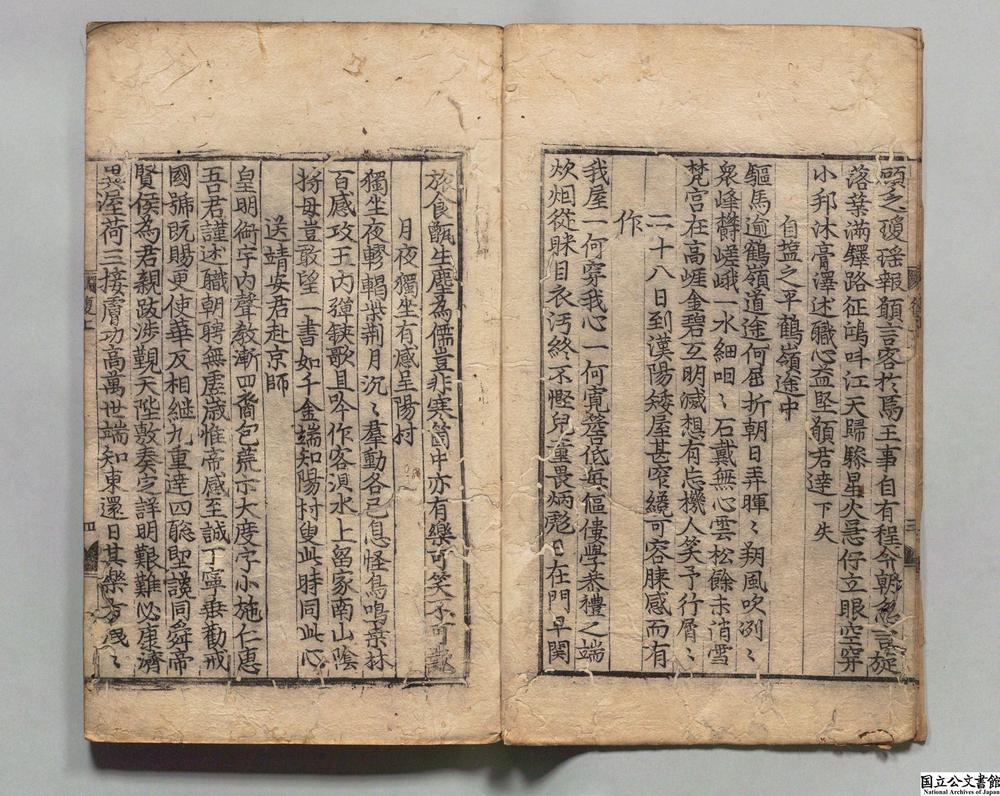 顧乏瓊瑶報願言客於焉王事自有程弇朝忽言旋
落葉滿驛路征鴻呌江天歸驂星火忙仔立眼空穿
小邦沐膏澤述職心益堅願君達下失
自盐之平鶴嶺途中
驅馬逾鶴嶺道途何屈折朝日弄暉〻朔風吹冽〻
衆峰欝嵯峨一水細咽〻石戴無心雲松餘未消雪
梵宫在高崕金碧互明滅想有忘機人笑予行屑〻
二十八日到漢陽矮屋甚窄纔可容膝感而有
作
我屋一何穿我心一何寛簷低每傴僂學恭禮之端
炊烟從眯目衣汚終不慳兒童畏炳彪日在門早関
旅食甑生塵為儒豈非寒箇中亦有樂可笑不可歎
月夜獨坐有感呈陽村
獨坐夜轇轕柴荆月沉〻羣動各已息怪鳥鳴柴林
百感攻王内彈鋏歌且吟作客浿水上留家南山陰
將母豈敢望一書如千金端知陽村叟此時同此心
送靖安君赴京師
皇明御宇内聲教漸四裔包荒示大度字小施仁惠
吾君謹述職朝聘無虚歳惟帝感至誠丁寧垂勸戒
國號既賜更使華反相継九重達四聡堲讒同舜帝
賢侯為君親跋涉覲天陛敷奏定詳明艱難必康濟
異渥荷三接膚功高萬世端知東還日其樂方洩〻
国立公文書館
National Archives of Japan